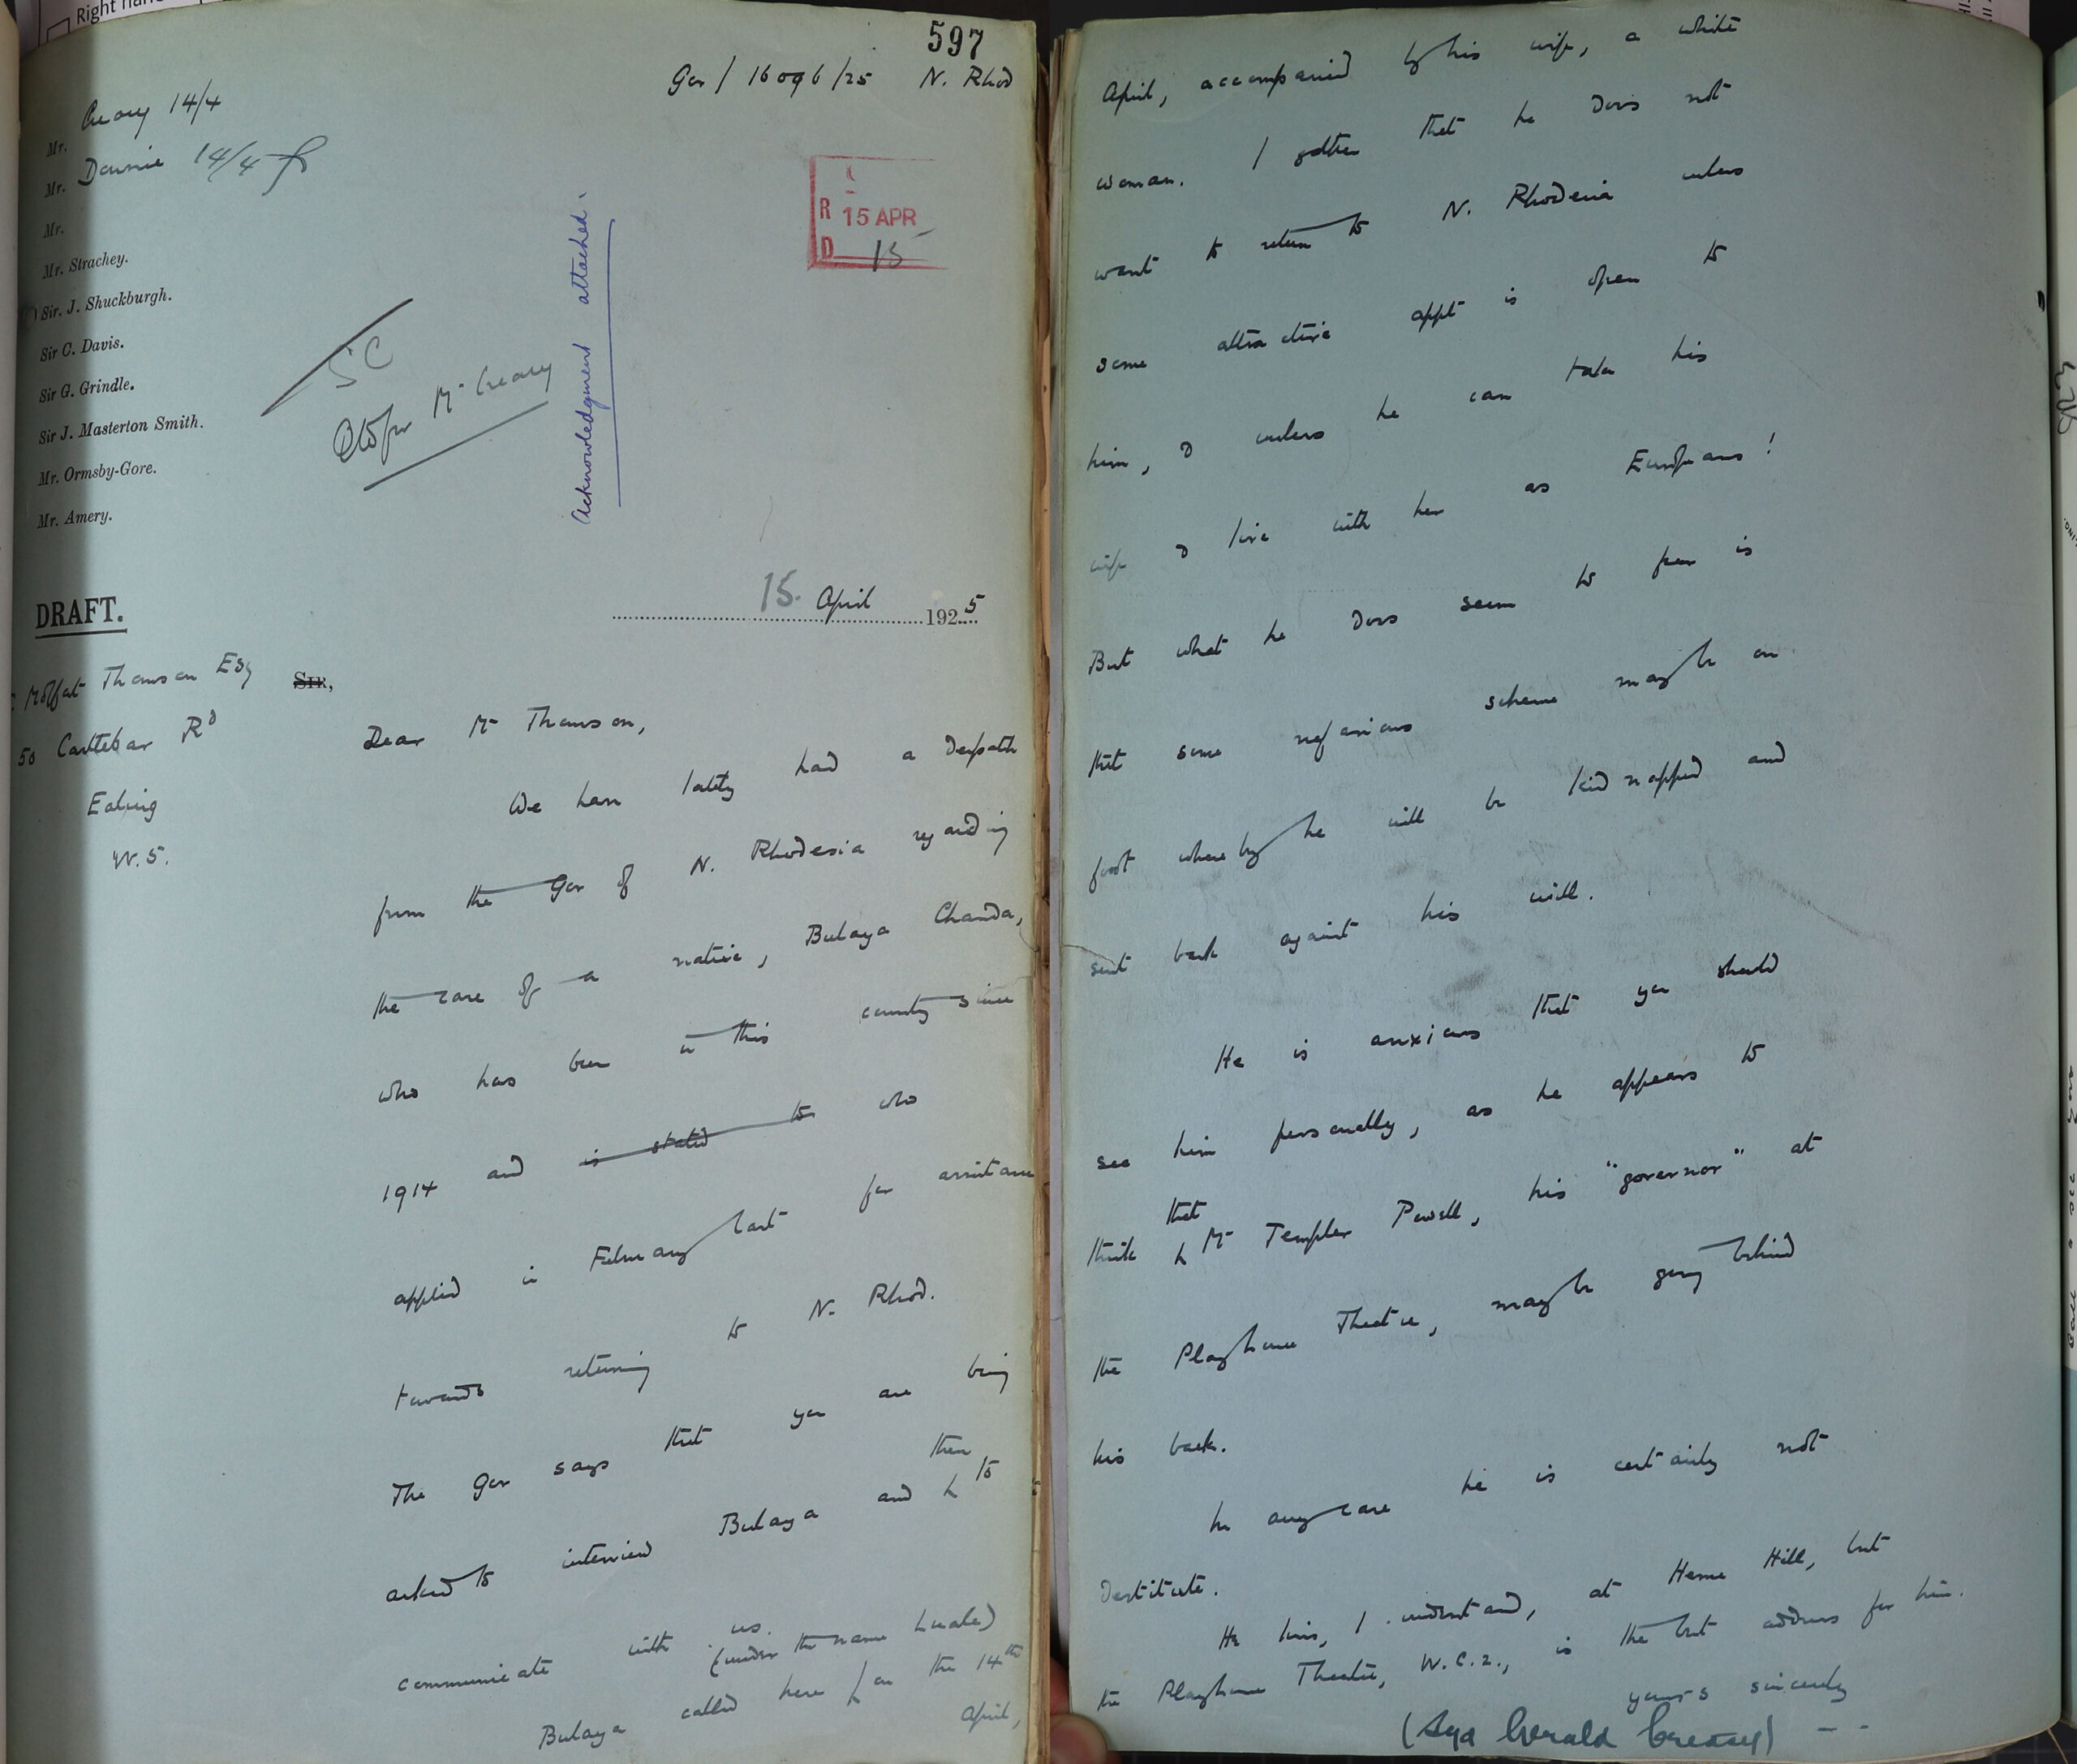 597
Gov / 16096/25 N. Rhod
Mr. Creasy 14/4
Mr. Downie 14/4
Mr.
Mr. Strachey.
Sir. J. Shuckburgh.
Sir C. Davis.
Sir G. Grindle.
Sir J. Masterton Smith.
Mr. Ormsby-Gore.
Mr. Amery.
SC
Mr Creasy
Acknowledgment attached.
R 15 APR
D 15
15. April 1925
DRAFT.
Moffat Thomson Esq
50 Castlebar Rd
Ealing
W.5.
Sir,
Dear Mr Thomson,
We have lately had a despatch
from the Gov of N. Rhodesia regarding
the case of a native, Bulaya Chanda,
who has been in this country since
1914 and is stated to who
applied in February last for assistance
towards returning to N. Rhod.
The Gov says that you are being
asked to interview Bulaya and then to
communicate with us.
Bulaya called here (under the name Luale) on the 14th
April,
April, accompanied by his wife, a white
woman. I gather that he does not
want to return to N. Rhodesia unless
some attractive appt is open to
him, & unless he can take his
wife & live with her as Europeans!
But what he does seem to fear is
that some nefarious scheme may be on
foot whereby he will be kidnapped and
sent back against his will.
He is anxious that you should
see him personally, as he appears to
think that Mr Templer Powell, his "governor" at
the Playhouse Theatre, may be going behind
his back.
In any case he is certainly not
destitute.
He lives, I understand, at Herne Hill, but
the Playhouse Theatre, W.C.2., is the best address for him.
yours sincerely
(Sgd Gerald Creasy)